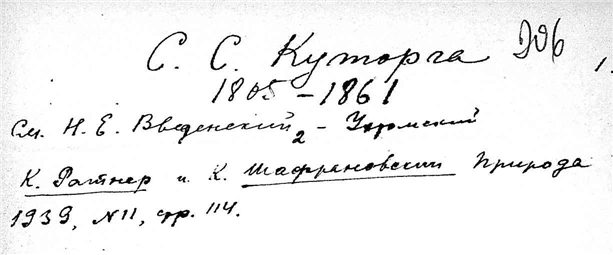 С. С. Куторга 206 1.
1805-1861
См. Н. Е. Введенский 2 - Ухтомский
К. Ратнер и К. Шафрановский Природа
1939, N11, стр. 114.